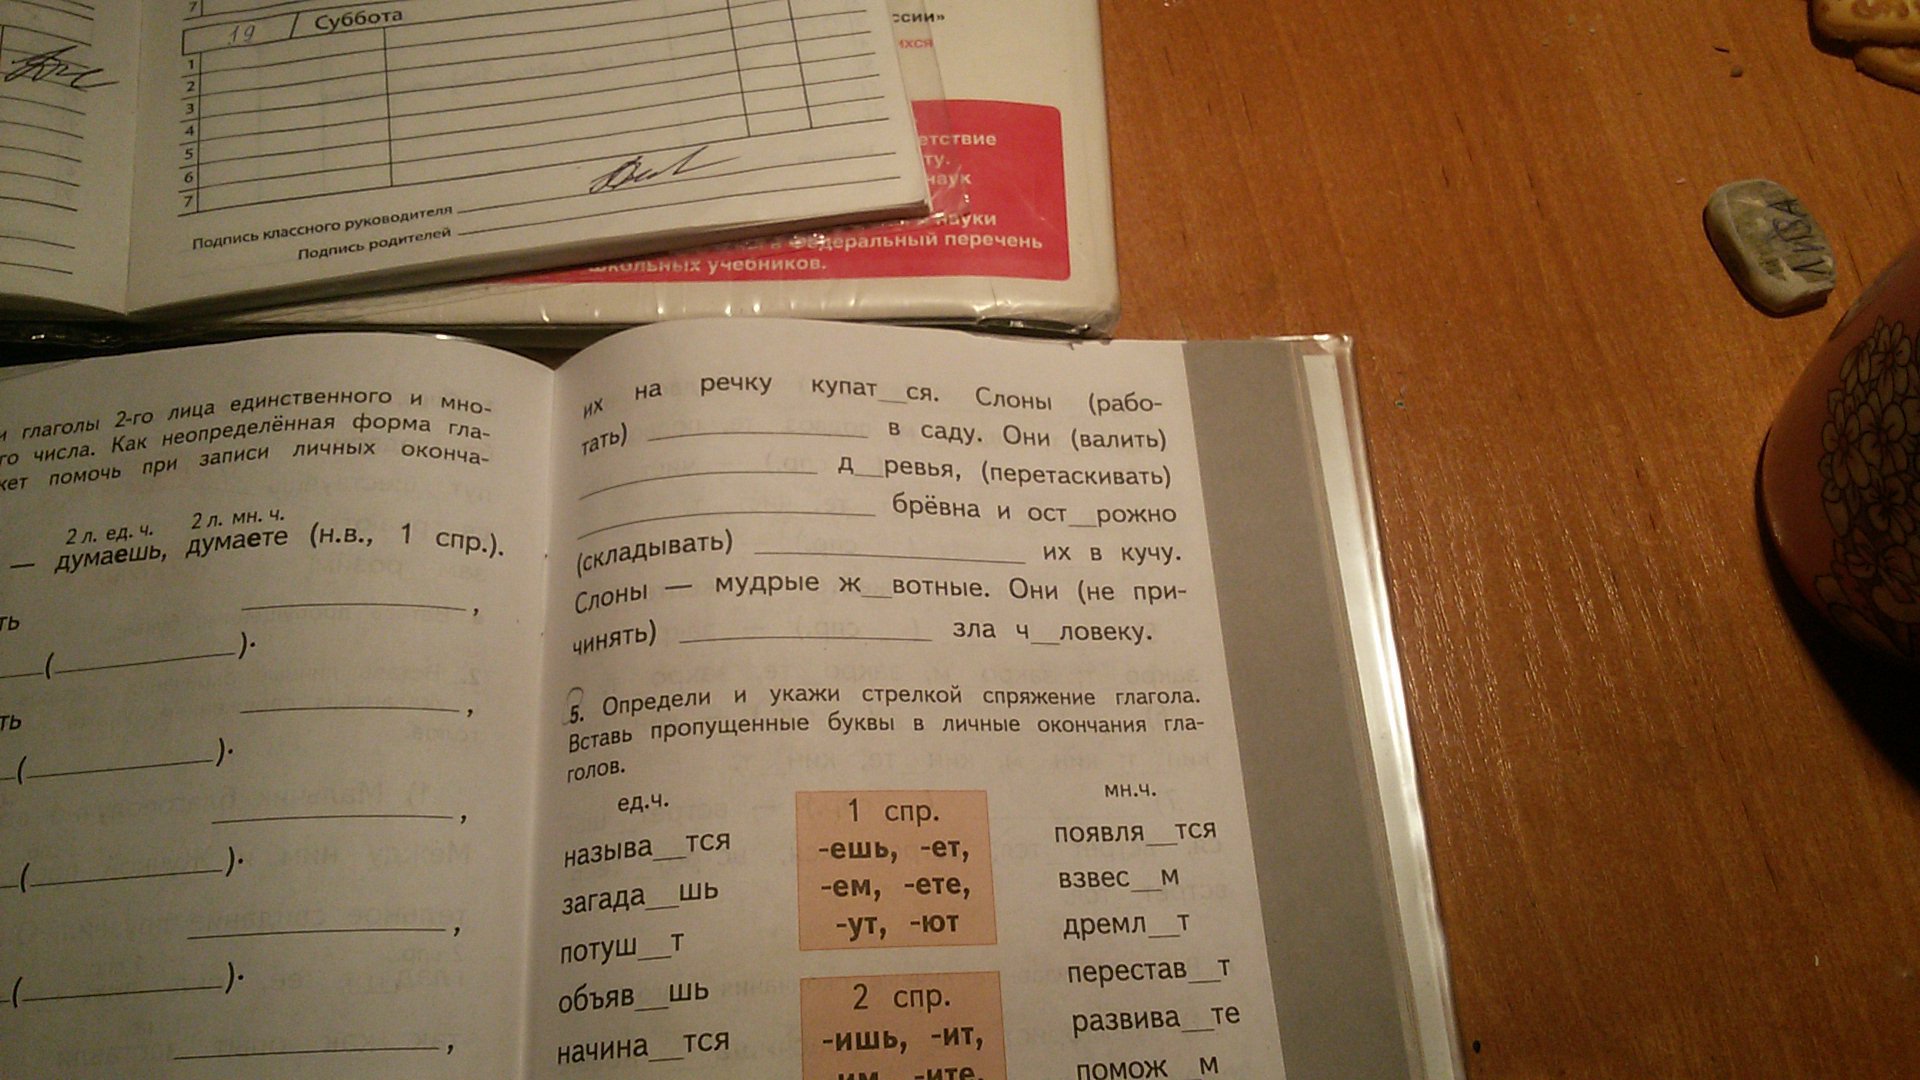 7
19 Суббота
1
2
3
4
5
6
7
Подпись классного руководителя
Подпись родителей
ссии»
ихся
етствие
ту.
наук
науки
в Федеральный перечень
школьных учебников.
ЛИЗА
и глаголы 2-го лица единственного и мно-
го числа. Как неопределённая форма гла-
жет помочь при записи личных оконча-
2 л. ед. ч. 2 л. мн. ч.
— думаешь, думаете (н.в., 1 спр.).
ть ____,
(____).
ть ____,
(____).
____,
(____).
____,
(____).
____,
их на речку купат__ся. Слоны (рабо-
тать) ____ в саду. Они (валить)
____ д__ревья, (перетаскивать)
____ брёвна и ост__рожно
(складывать) ____ их в кучу.
Слоны — мудрые ж__вотные. Они (не при-
чинять) ____ зла ч__ловеку.
5. Определи и укажи стрелкой спряжение глагола.
Вставь пропущенные буквы в личные окончания гла-
голов.
ед.ч.
называ__тся
загада__шь
потуш__т
объяв__шь
начина__тся
1 спр.
-ешь, -ет,
-ем, -ете,
-ут, -ют
2 спр.
-ишь, -ит,
-им, -ите,
мн.ч.
появля__тся
взвес__м
дремл__т
перестав__т
развива__те
помож__м